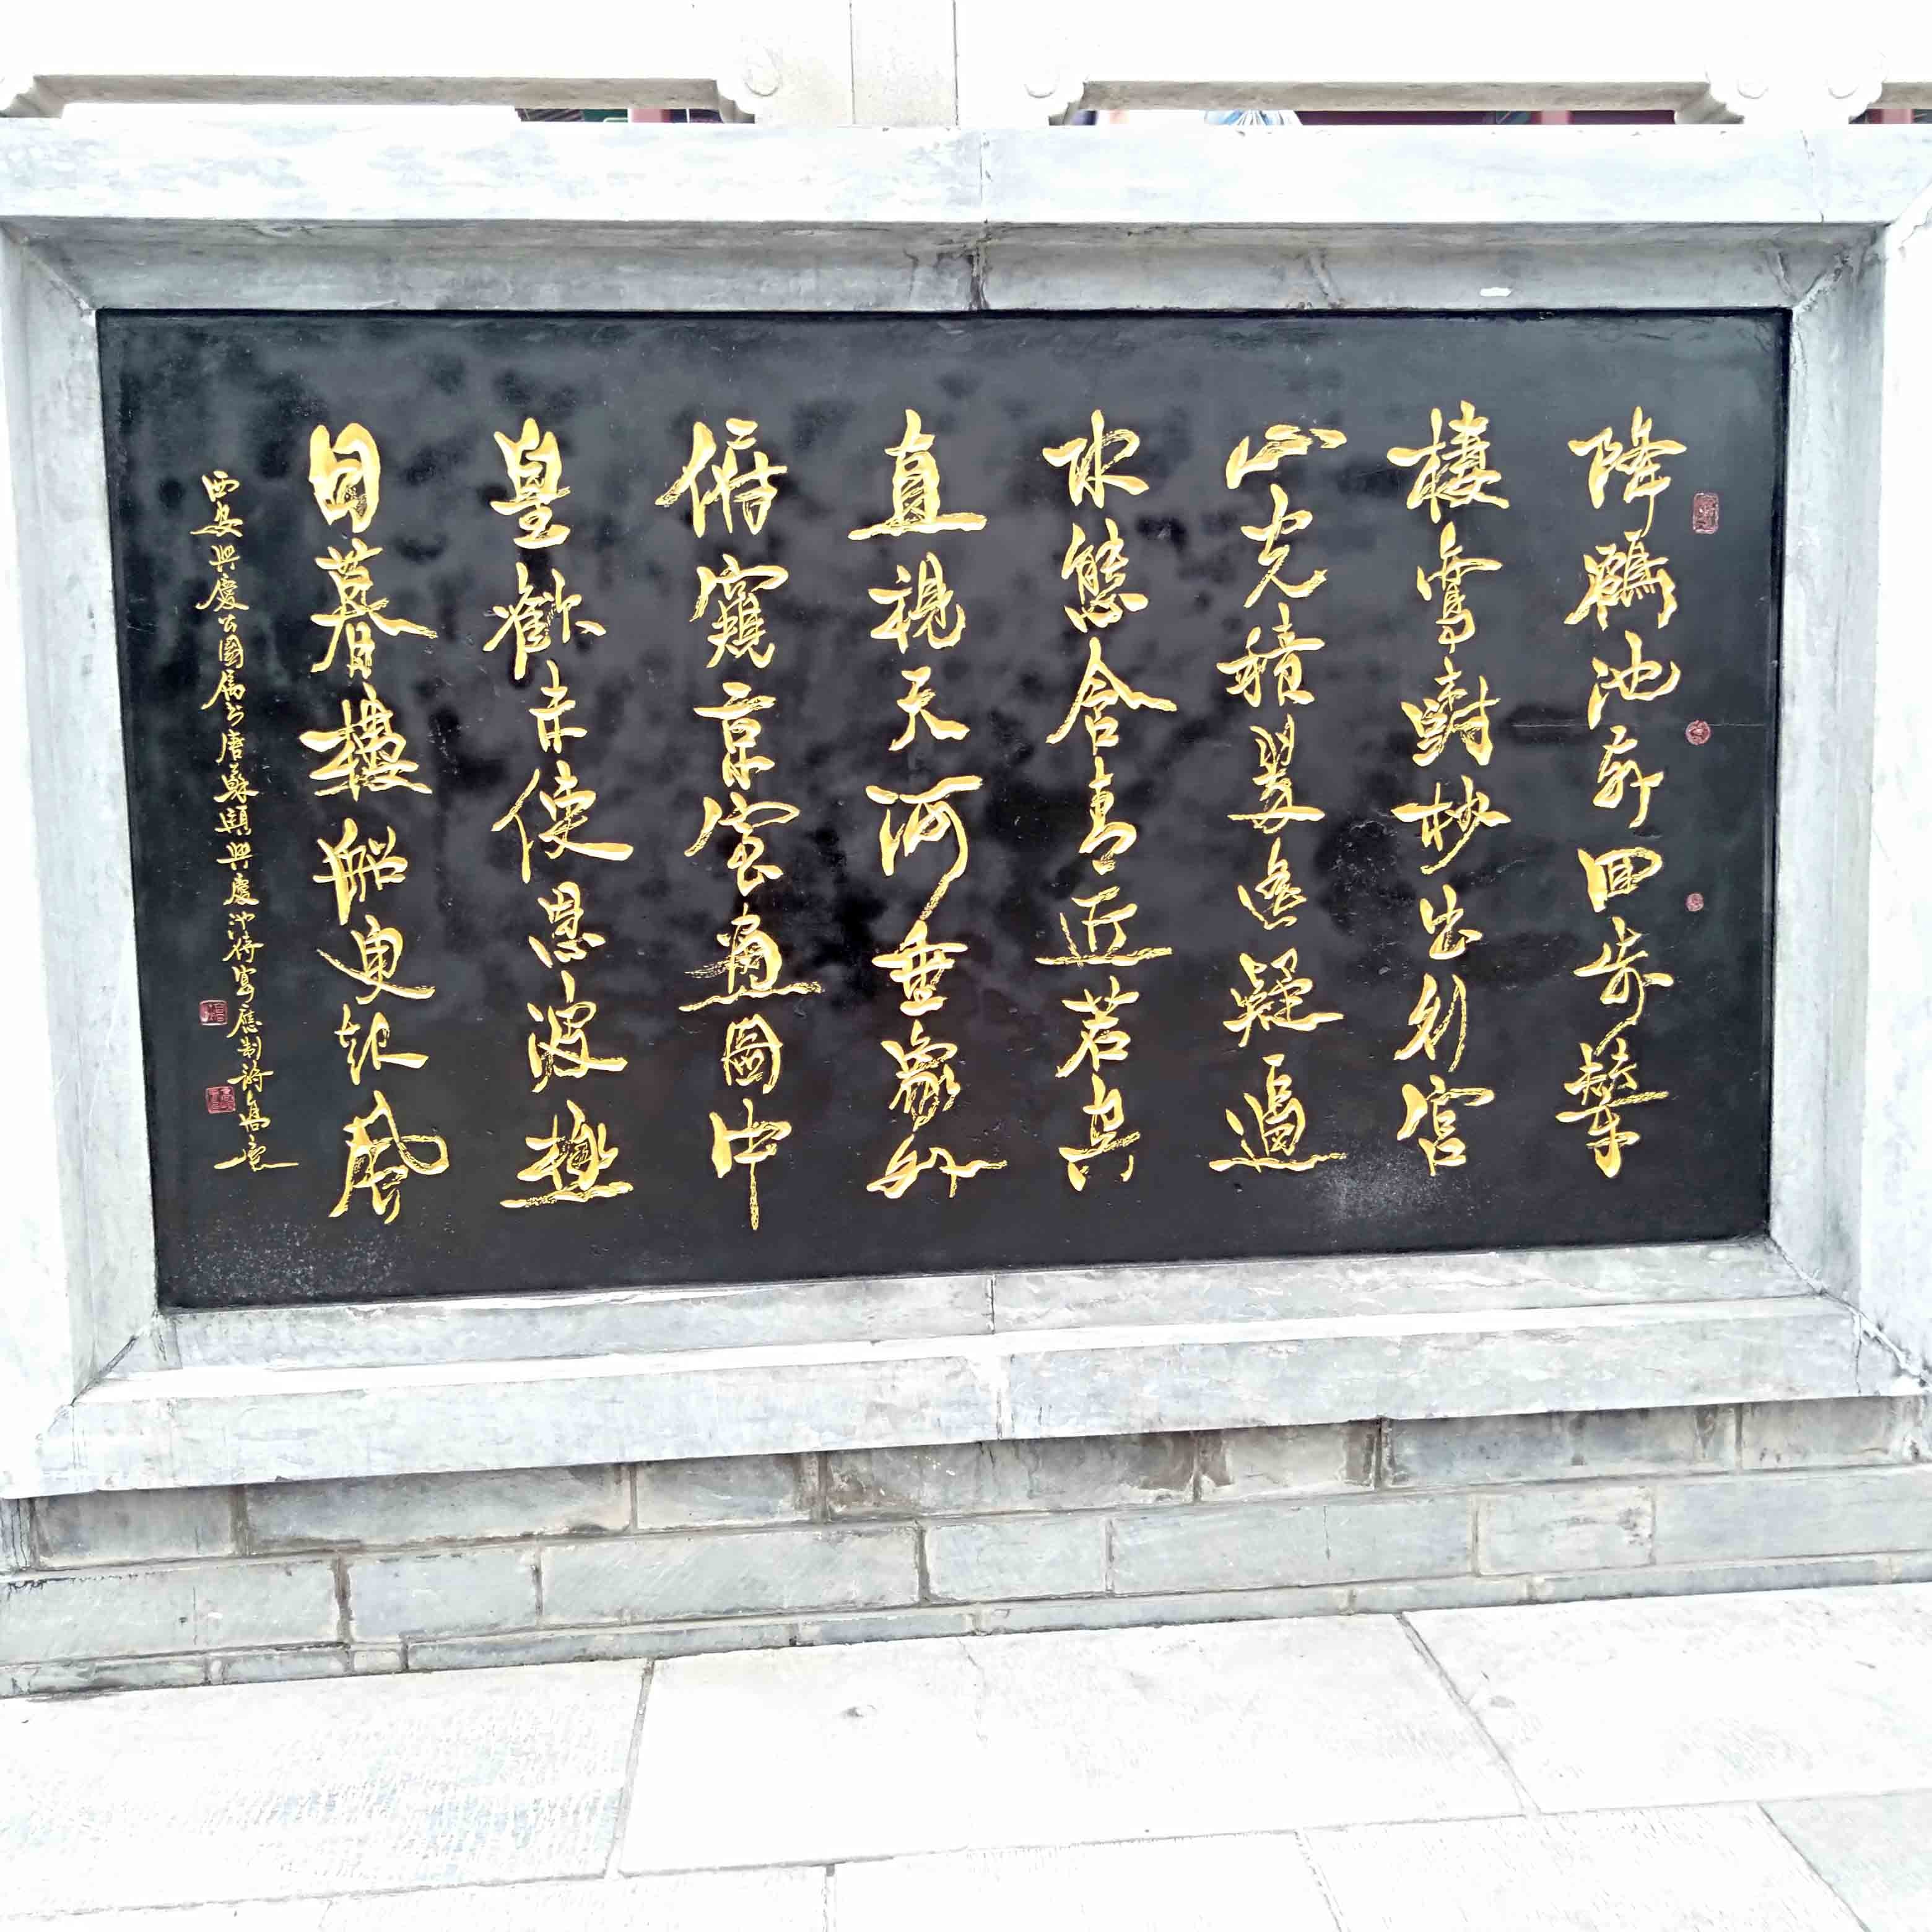 降鶴池前回步輦
棲鸞樹杪出行宮
山光積翠遙疑逼
水態含青近若空
直視天河垂象外
俯窺京室畫圖中
皇歡未使恩波極
日暮樓船更起風
西安興慶公園屬書唐蘇頲興慶池侍宴應制詩